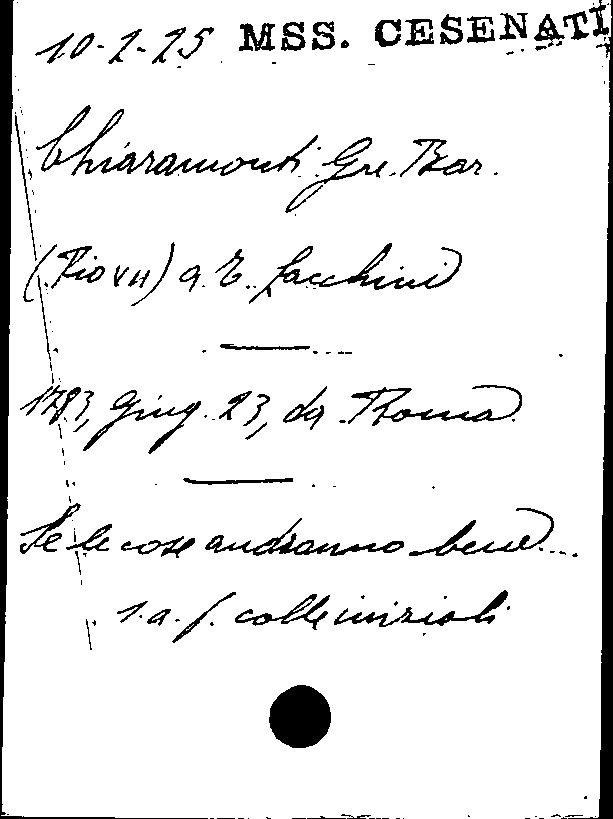 10-2-25 MSS. CESENATI
Chiaramonti Gre. Bar.
(Pio VII) a E. Facchini
1793, Giug. 23, da Roma
Se le cose andranno bene...
1. a. f. colle iniziali